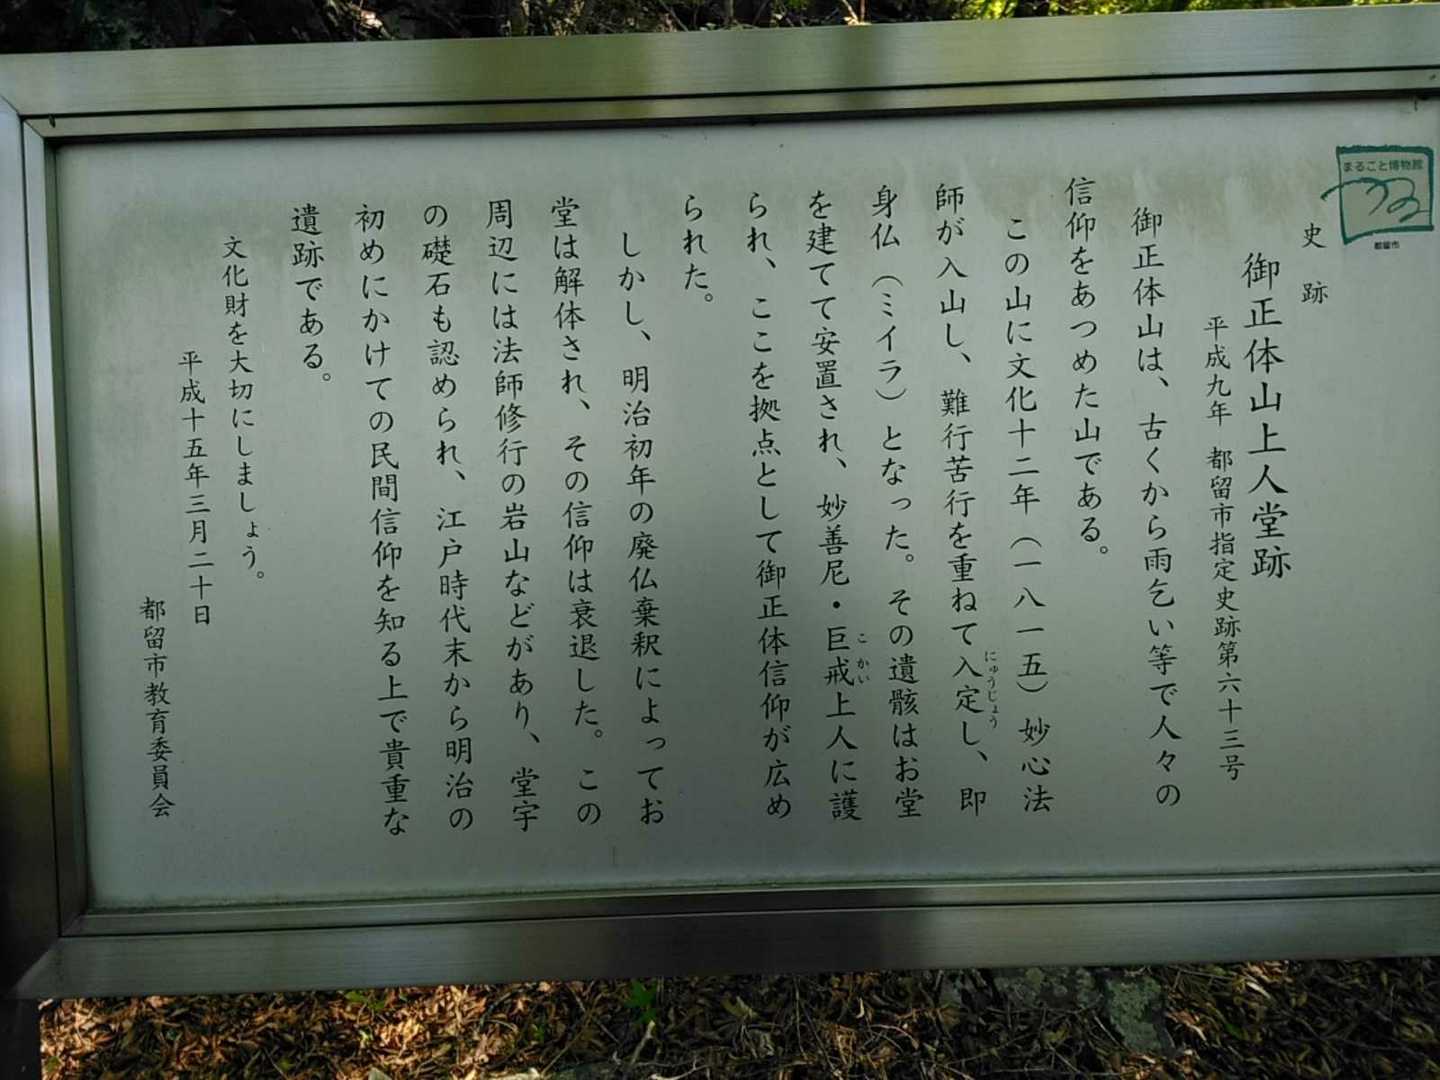 まるごと博物館
つる
都留市
史跡
御正体山上人堂跡
平成九年 都留市指定史跡第六十三号
御正体山は、古くから雨乞い等で人々の
信仰をあつめた山である。
この山に文化十二年（一八一五）妙心法
師が入山し、難行苦行を重ねて入定し、即
にゅうじょう
身仏（ミイラ）となった。その遺骸はお堂
を建てて安置され、妙善尼・巨戒上人に護
こかい
られ、ここを拠点として御正体信仰が広め
られた。
しかし、明治初年の廃仏棄釈によってお
堂は解体され、その信仰は衰退した。この
周辺には法師修行の岩山などがあり、堂宇
の礎石も認められ、江戸時代末から明治の
初めにかけての民間信仰を知る上で貴重な
遺跡である。
文化財を大切にしましょう。
平成十五年三月二十日
都留市教育委員会